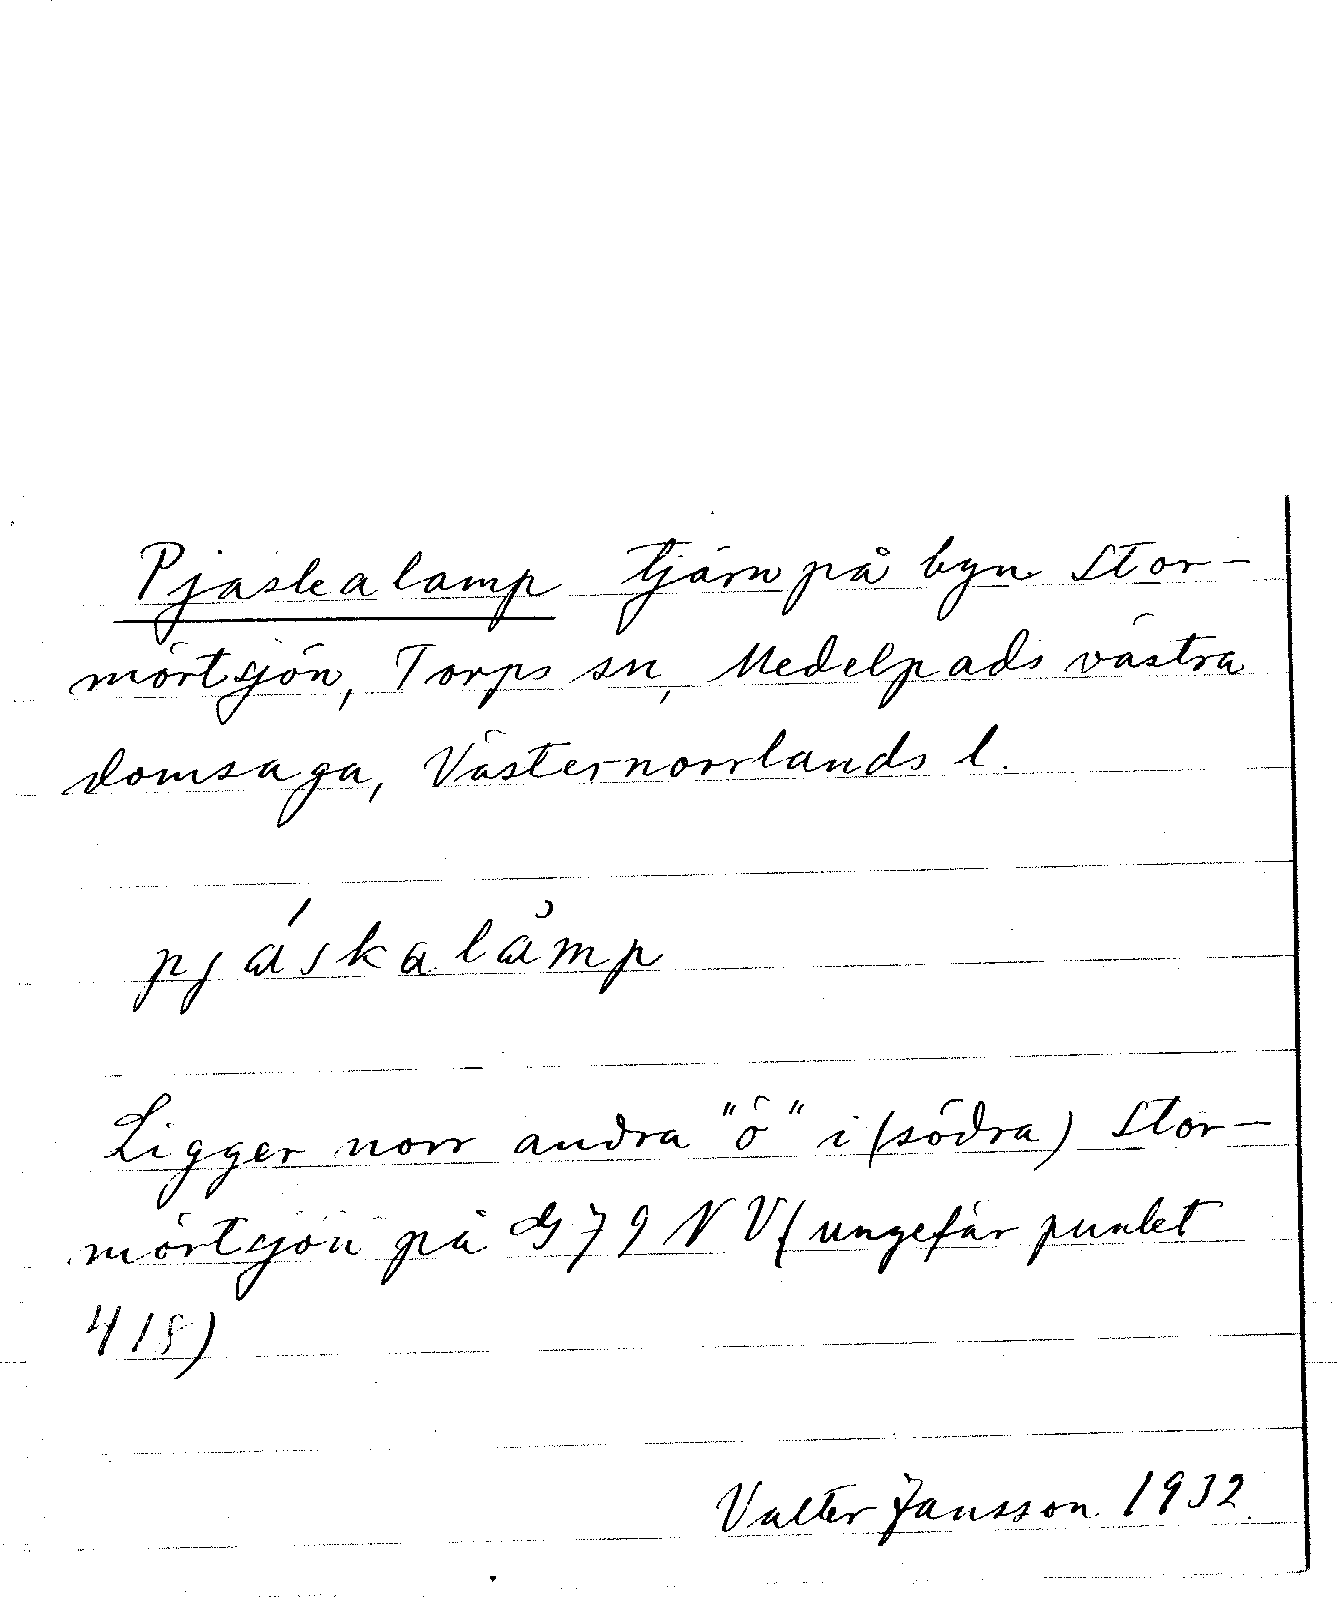 Pjaskalamp tjärn på byn Stor-
mörtsjön, Torps sn, Medelpads västra
domsaga, Västernorrlands l.
pjáskalåmp
Ligger norr andra "ö" i (södra) Stor-
mörtsjön på G79 NV (ungefär punkt
418)
Valter Jansson 1932